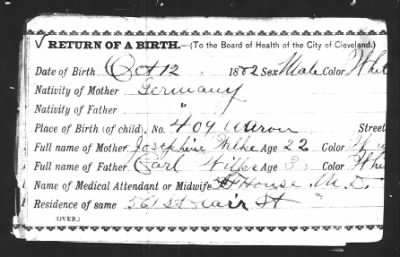 √ RETURN OF A BIRTH.—(To the Board of Health of the City of Cleveland.)
Date of Birth Oct 12 1882 Sex Male Color Whit
Nativity of Mother Germany
Nativity of Father "
Place of Birth (of child) No. 409 Street
Full name of Mother Josephine Age 22 Color
Full name of Father Carl Age 3 Color Whi
Name of Medical Attendant or Midwife House M.D.
Residence of same 561 St Clair St
(OVER.)